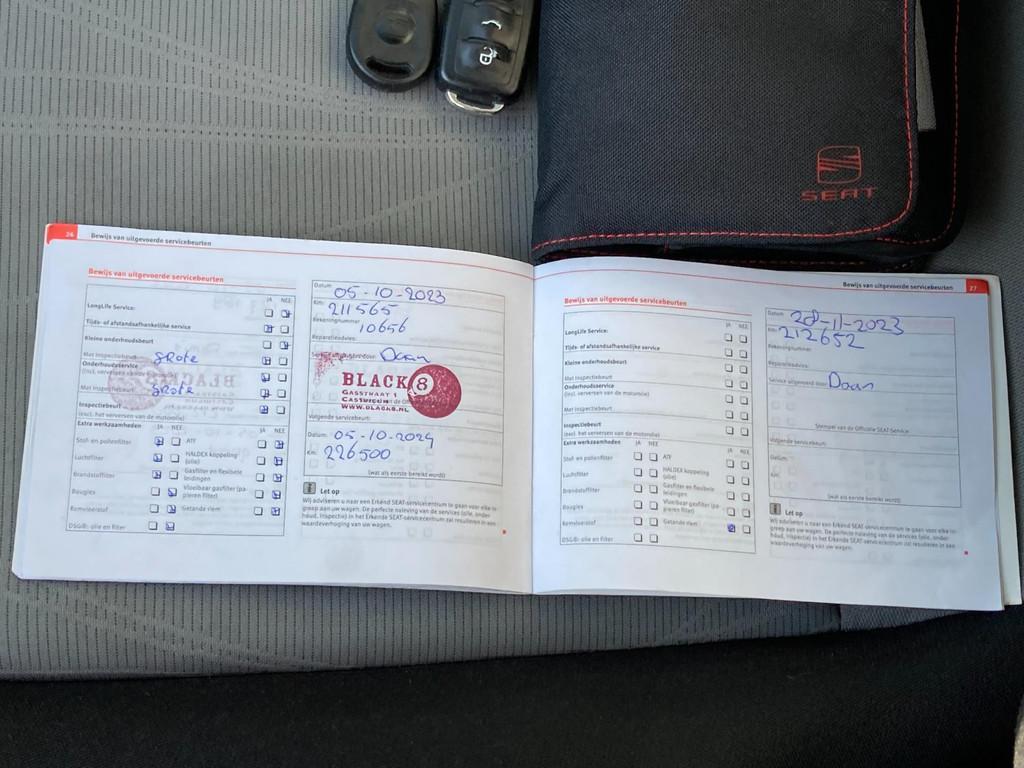 SEAT
26 Bewijs van uitgevoerde servicebeurten
Bewijs van uitgevoerde servicebeurten
JA NEE
LongLife Service:
Tijds- of afstandsafhankelijke service
Kleine onderhoudsbeurt
Met Inspectiebeurt grote
Onderhoudsservice
(incl. verversen van
Met Inspectiebeurt grote
Inspectiebeurt
(excl. het verversen van de motorolie)
Extra werkzaamheden JA NEE JA NEE
Stof- en pollenfilter ATF
Luchtfilter HALDEX koppeling (olie)
Brandstoffilter Gasfilter en flexibele leidingen
Bougies Vloeibaar gasfilter (papieren filter)
Remvloeistof Getande riem
DSG®: olie en filter
Datum: 05-10-2023
Km: 211565
Rekeningnummer 10656
Reparatiedévies:
Daan
BLACK 8
GASSTRAAT 1
CASTRICUM
WWW.BLACK8.NL
Volgende servicebeurt:
Datum: 05-10-2024
Km: 226500
(wat als eerste bereikt wordt)
Let op
Wij adviseren u naar een Erkend SEAT-servicecentrum te gaan voor elke in-
greep aan uw wagen. De perfecte naleving van de services (olie, onder-
houd, inspectie) in het Erkende SEAT-servicecentrum zal resulteren in een
waardeverhoging van uw wagen.
Bewijs van uitgevoerde servicebeurten 27
Bewijs van uitgevoerde servicebeurten
JA NEE
LongLife Service:
Tijds- of afstandsafhankelijke service
Kleine onderhoudsbeurt
Met Inspectiebeurt
Onderhoudsservice
(incl. verversen van de motorolie)
Met Inspectiebeurt
Inspectiebeurt
(excl. het verversen van de motorolie)
Extra werkzaamheden JA NEE JA NEE
Stof- en pollenfilter ATF
Luchtfilter HALDEX koppeling (olie)
Brandstoffilter Gasfilter en flexibele leidingen
Bougies Vloeibaar gasfilter (papieren filter)
Remvloeistof Getande riem
DSG®: olie en filter
Datum: 28-11-2023
Km: 212652
Rekeningnummer:
Reparatiedévies:
Service uitgevoerd door: Daan
Stempel van de Officiële SEAT-Service
Volgende servicebeurt:
Datum:
Km:
(wat als eerste bereikt wordt)
Let op
Wij adviseren u naar een Erkend SEAT-servicecentrum te gaan voor elke in-
greep aan uw wagen. De perfecte naleving van de services (olie, onder-
houd, inspectie) in het Erkende SEAT-servicecentrum zal resulteren in een
waardeverhoging van uw wagen.